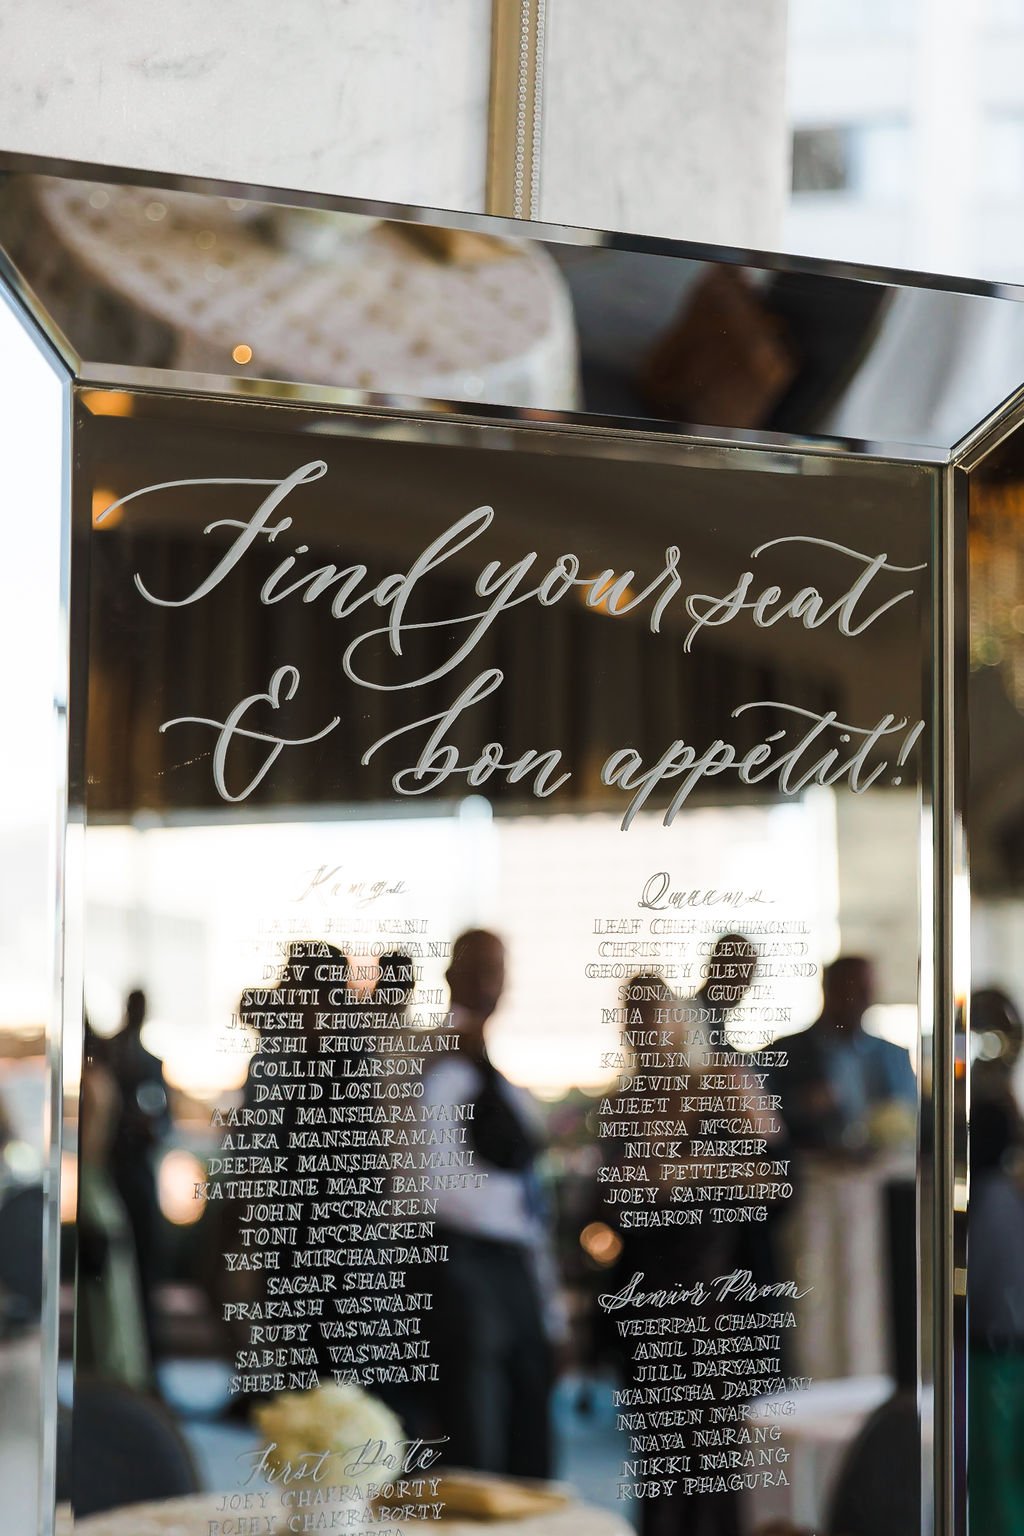 Find your seat
& bon appétit!
Kings
BHOJWANI
BHOJWANI
DEV CHANDANI
SUNITI CHANDANI
JITESH KHUSHALANI
KHUSHALANI
COLLIN LARSON
DAVID LOSLOSO
AARON MANSHARAMANI
ALKA MANSHARAMANI
DEEPAK MANSHARAMANI
KATHERINE MARY BARNETT
JOHN McCRACKEN
TONI McCRACKEN
YASH MIRCHANDANI
SAGAR SHAH
PRAKASH VASWANI
RUBY VASWANI
SABENA VASWANI
SHEENA VASWANI
First Date
JOEY CHAKRABORTY
CHAKRABORTY
Queens
LEAF
CHRISTY CLEVELAND
GEOFFREY CLEVELAND
SONALI GUPTA
MIA HUDDLESTON
NICK JACKSON
KAITLYN JIMINEZ
DEVIN KELLY
AJEET KHATKER
MELISSA McCALL
NICK PARKER
SARA PETTERSON
JOEY SANFILIPPO
SHARON TONG
Senior Prom
VEERPAL CHADHA
ANIL DARYANI
JILL DARYANI
MANISHA DARYANI
NAVEEN NARANG
NAYA NARANG
NIKKI NARANG
RUBY PHAGURA